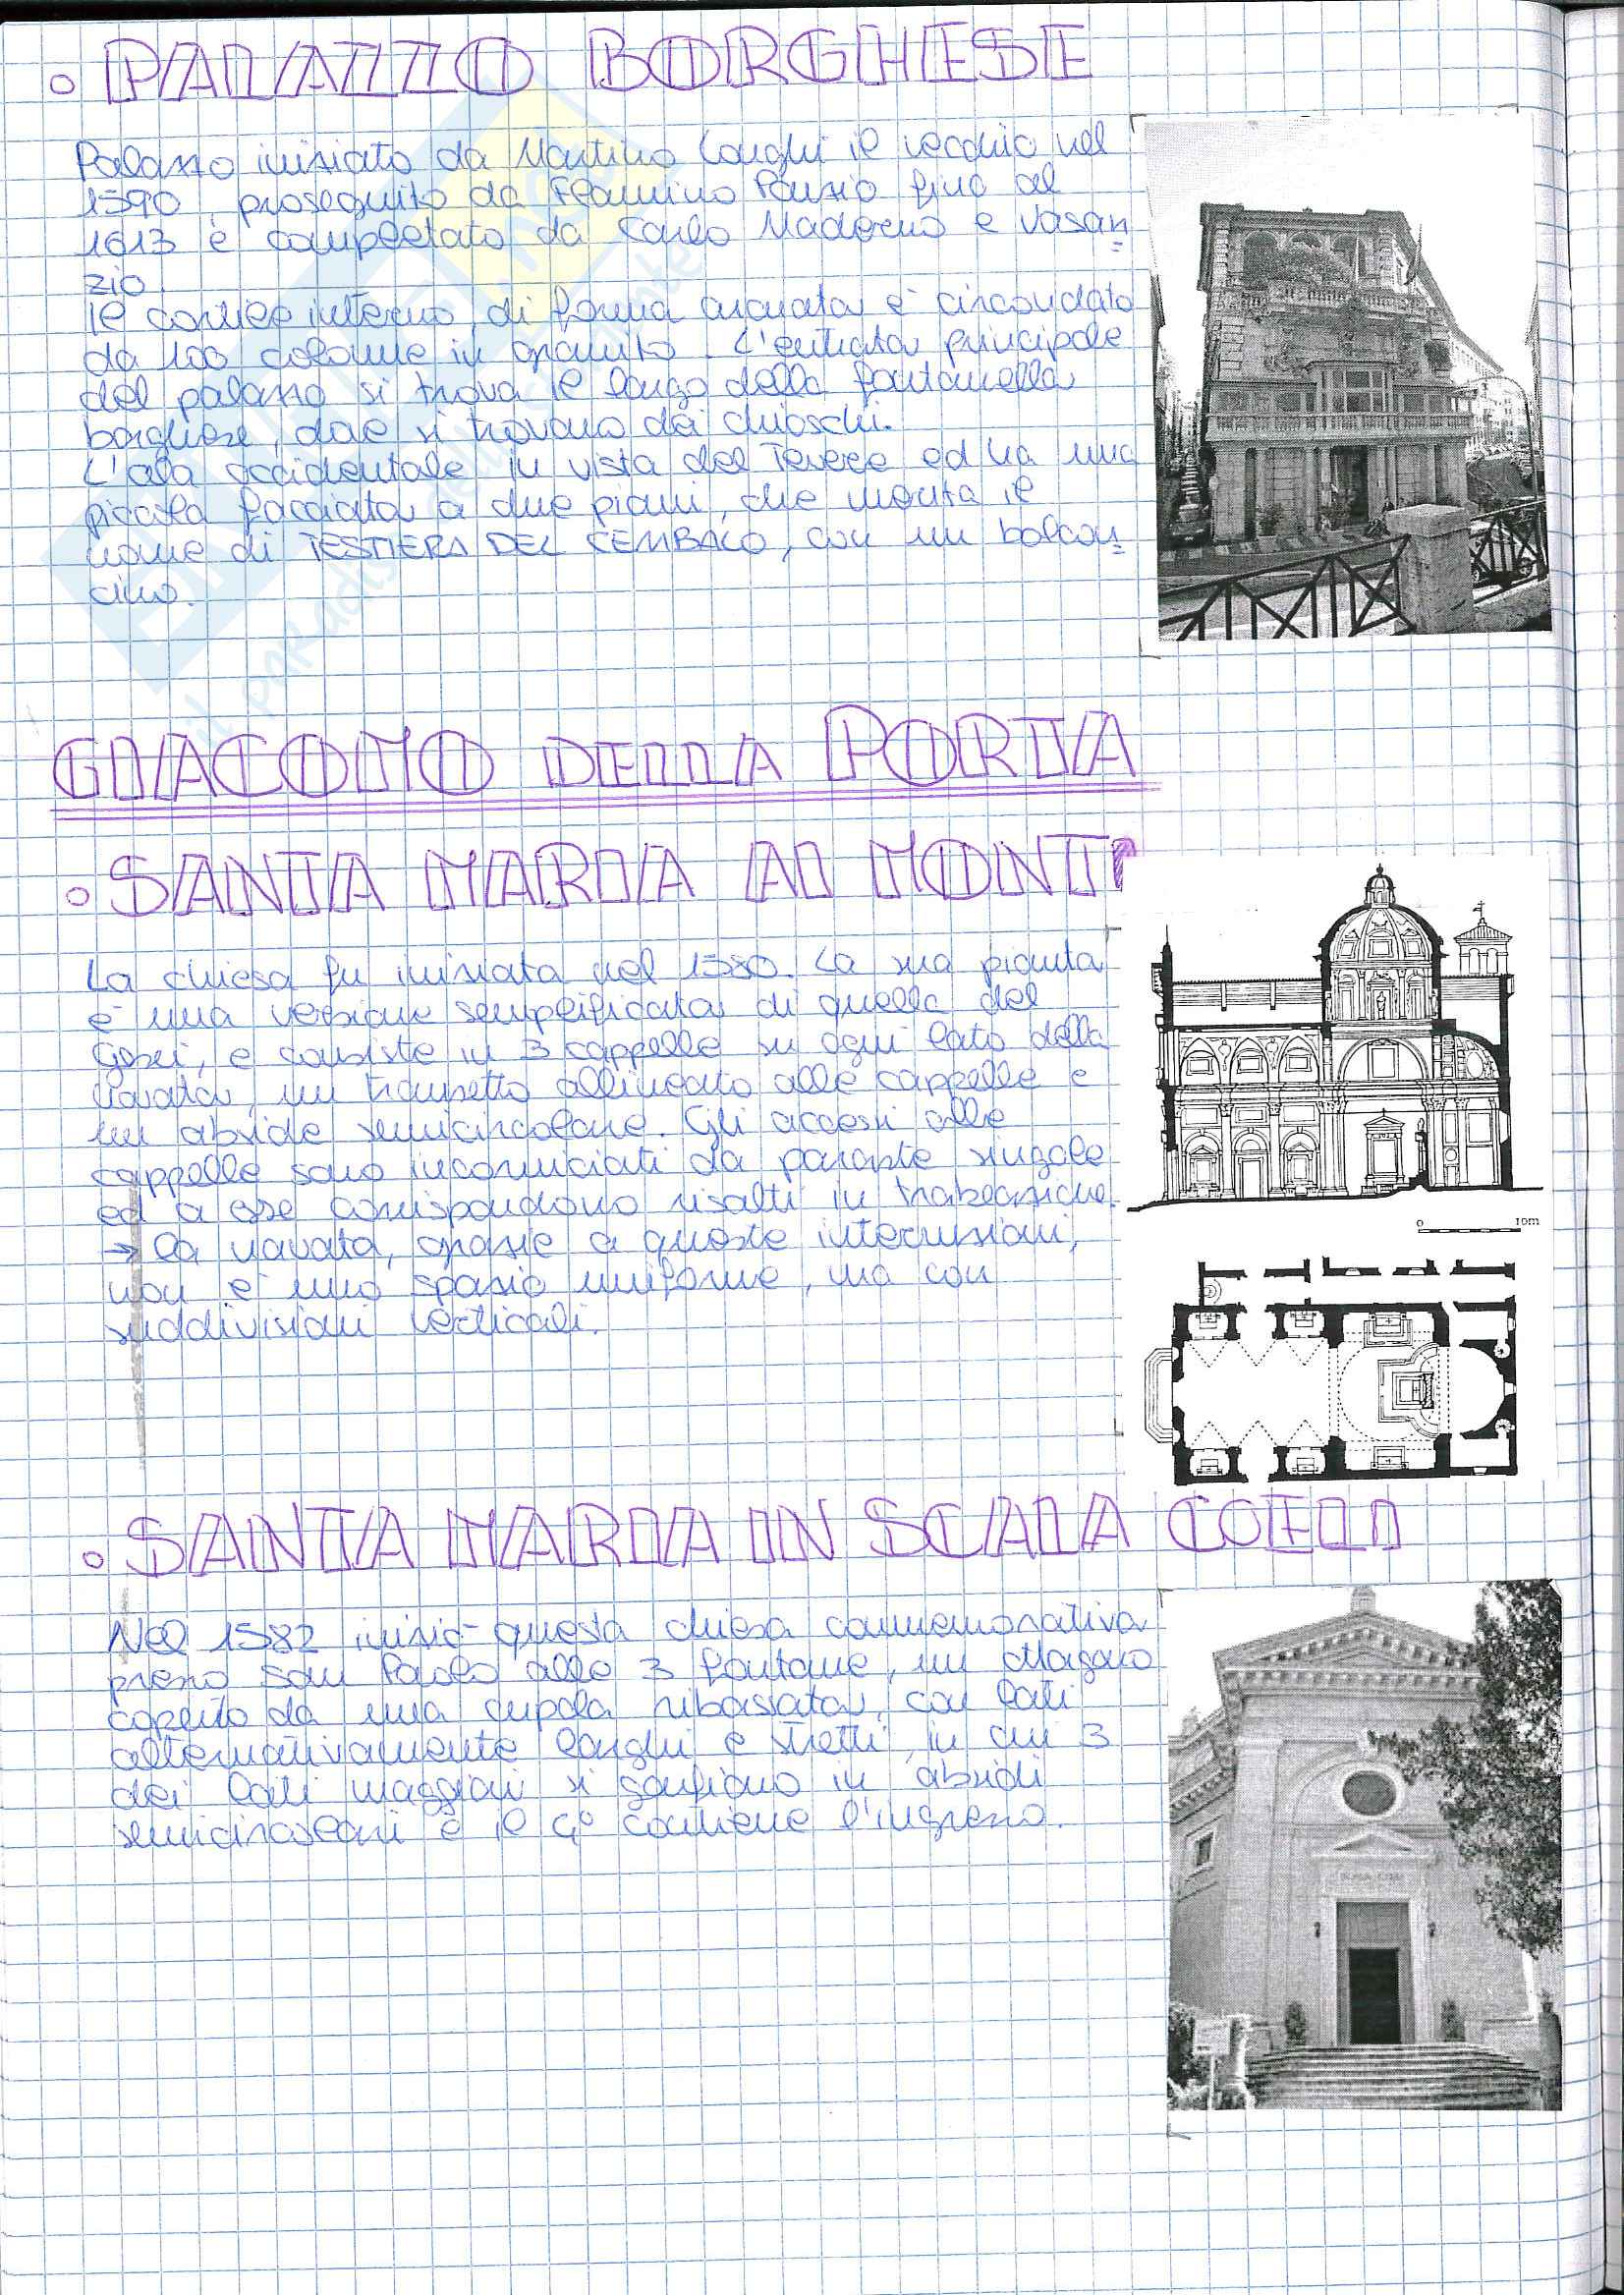 • PALAZZO BORGHESE
Palazzo iniziato da Martino Longhi il vecchio nel
1590, proseguito da Flaminio Ponzio fino al
1613 e completato da Carlo Maderno e Vasan=
zio.
Il cortile interno, di forma arcuata è circondato
da 100 colonne in granito. L'entrata principale
del palazzo si trova il largo della fontanella
borghese, dove si trovano dei chioschi.
L'ala occidentale in vista del Tevere ed ha una
piccola facciata a due piani, che merita il
nome di TESTIERA DEL CEMBALO, con un balcon=
cino.
GIACOMO DELLA PORTA
• SANTA MARIA AI MONTI
La chiesa fu iniziata nel 1580. La sua pianta
è una versione semplificata di quella del
Gesù, e consiste in 3 cappelle su ogni lato della
navata, un transetto allineato alle cappelle e
un abside semicircolare. Gli accessi alle
cappelle sono incorniciati da paraste singole
ed a esse corrispondono risalti in trabeazione.
→ la navata, grazie a queste interruzioni,
non è uno spazio uniforme, ma con
suddivisioni verticali.
0 10m
• SANTA MARIA IN SCALA COELI
Nel 1582 iniziò questa chiesa commemorativa
presso San Paolo alle 3 fontane, un ottagono
coperto da una cupola ribassata, con lati
alternativamente larghi e stretti, in cui 3
dei lati maggiori si gonfiano in absidi
semicircolari e il 4° contiene l'ingresso.